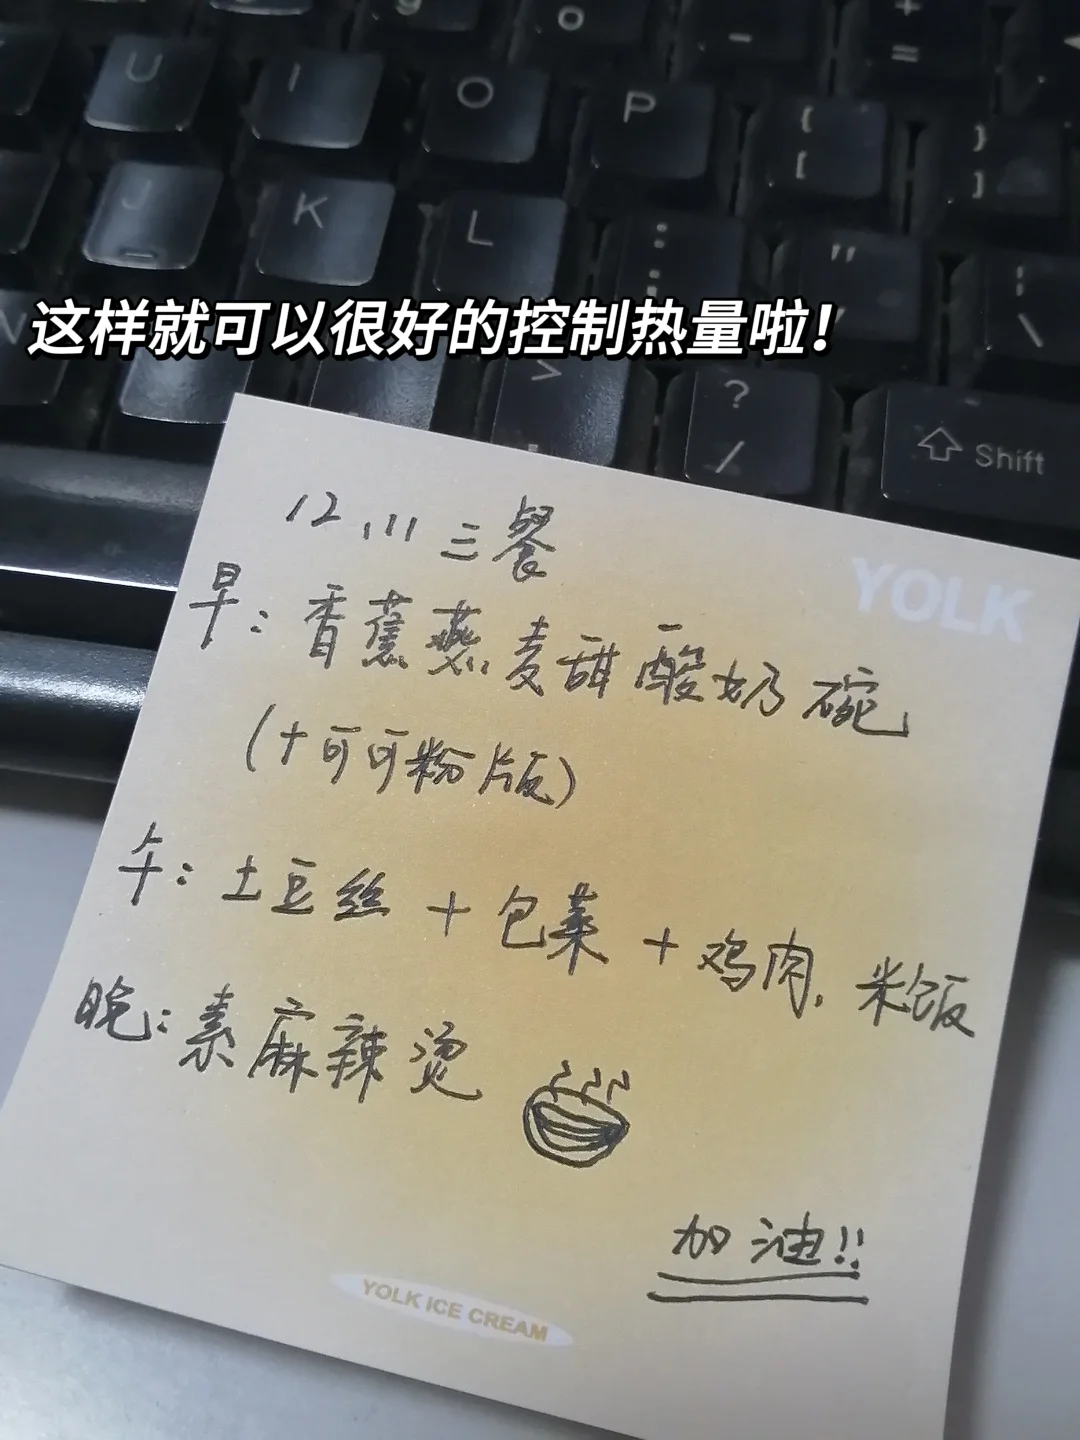 g
o
-
+
=
U
I
O
P
{
[
}
]
J
K
L
:
;
"
'
|
\
N
这样就可以很好的控制热量啦！
>
.
?
/
Shift
12.11 三餐
YOLK
早：香蕉燕麦甜酸奶碗
（+可可粉版）
午：土豆丝 + 包菜 + 鸡肉, 米饭
晚：素麻辣烫
加油!!
YOLK ICE CREAM